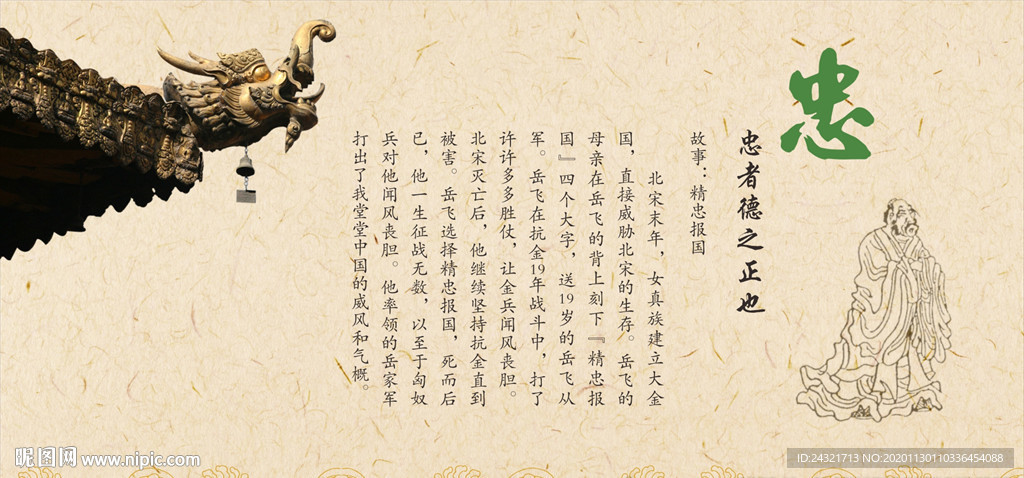 忠
忠者德之正也
故事：精忠报国
北宋末年，女真族建立大金
国，直接威胁北宋的生存。岳飞的
母亲在岳飞的背上刻下『精忠报
国』四个大字，送19岁的岳飞从
军。岳飞在抗金19年战斗中，打了
许许多多胜仗，让金兵闻风丧胆。
北宋灭亡后，他继续坚持抗金直到
被害。岳飞选择精忠报国，死而后
已，他一生征战无数，以至于匈奴
兵对他闻风丧胆。他率领的岳家军
打出了我堂堂中国的威风和气概。
昵图网 www.nipic.com
ID:24321713 NO:20201130110336454088